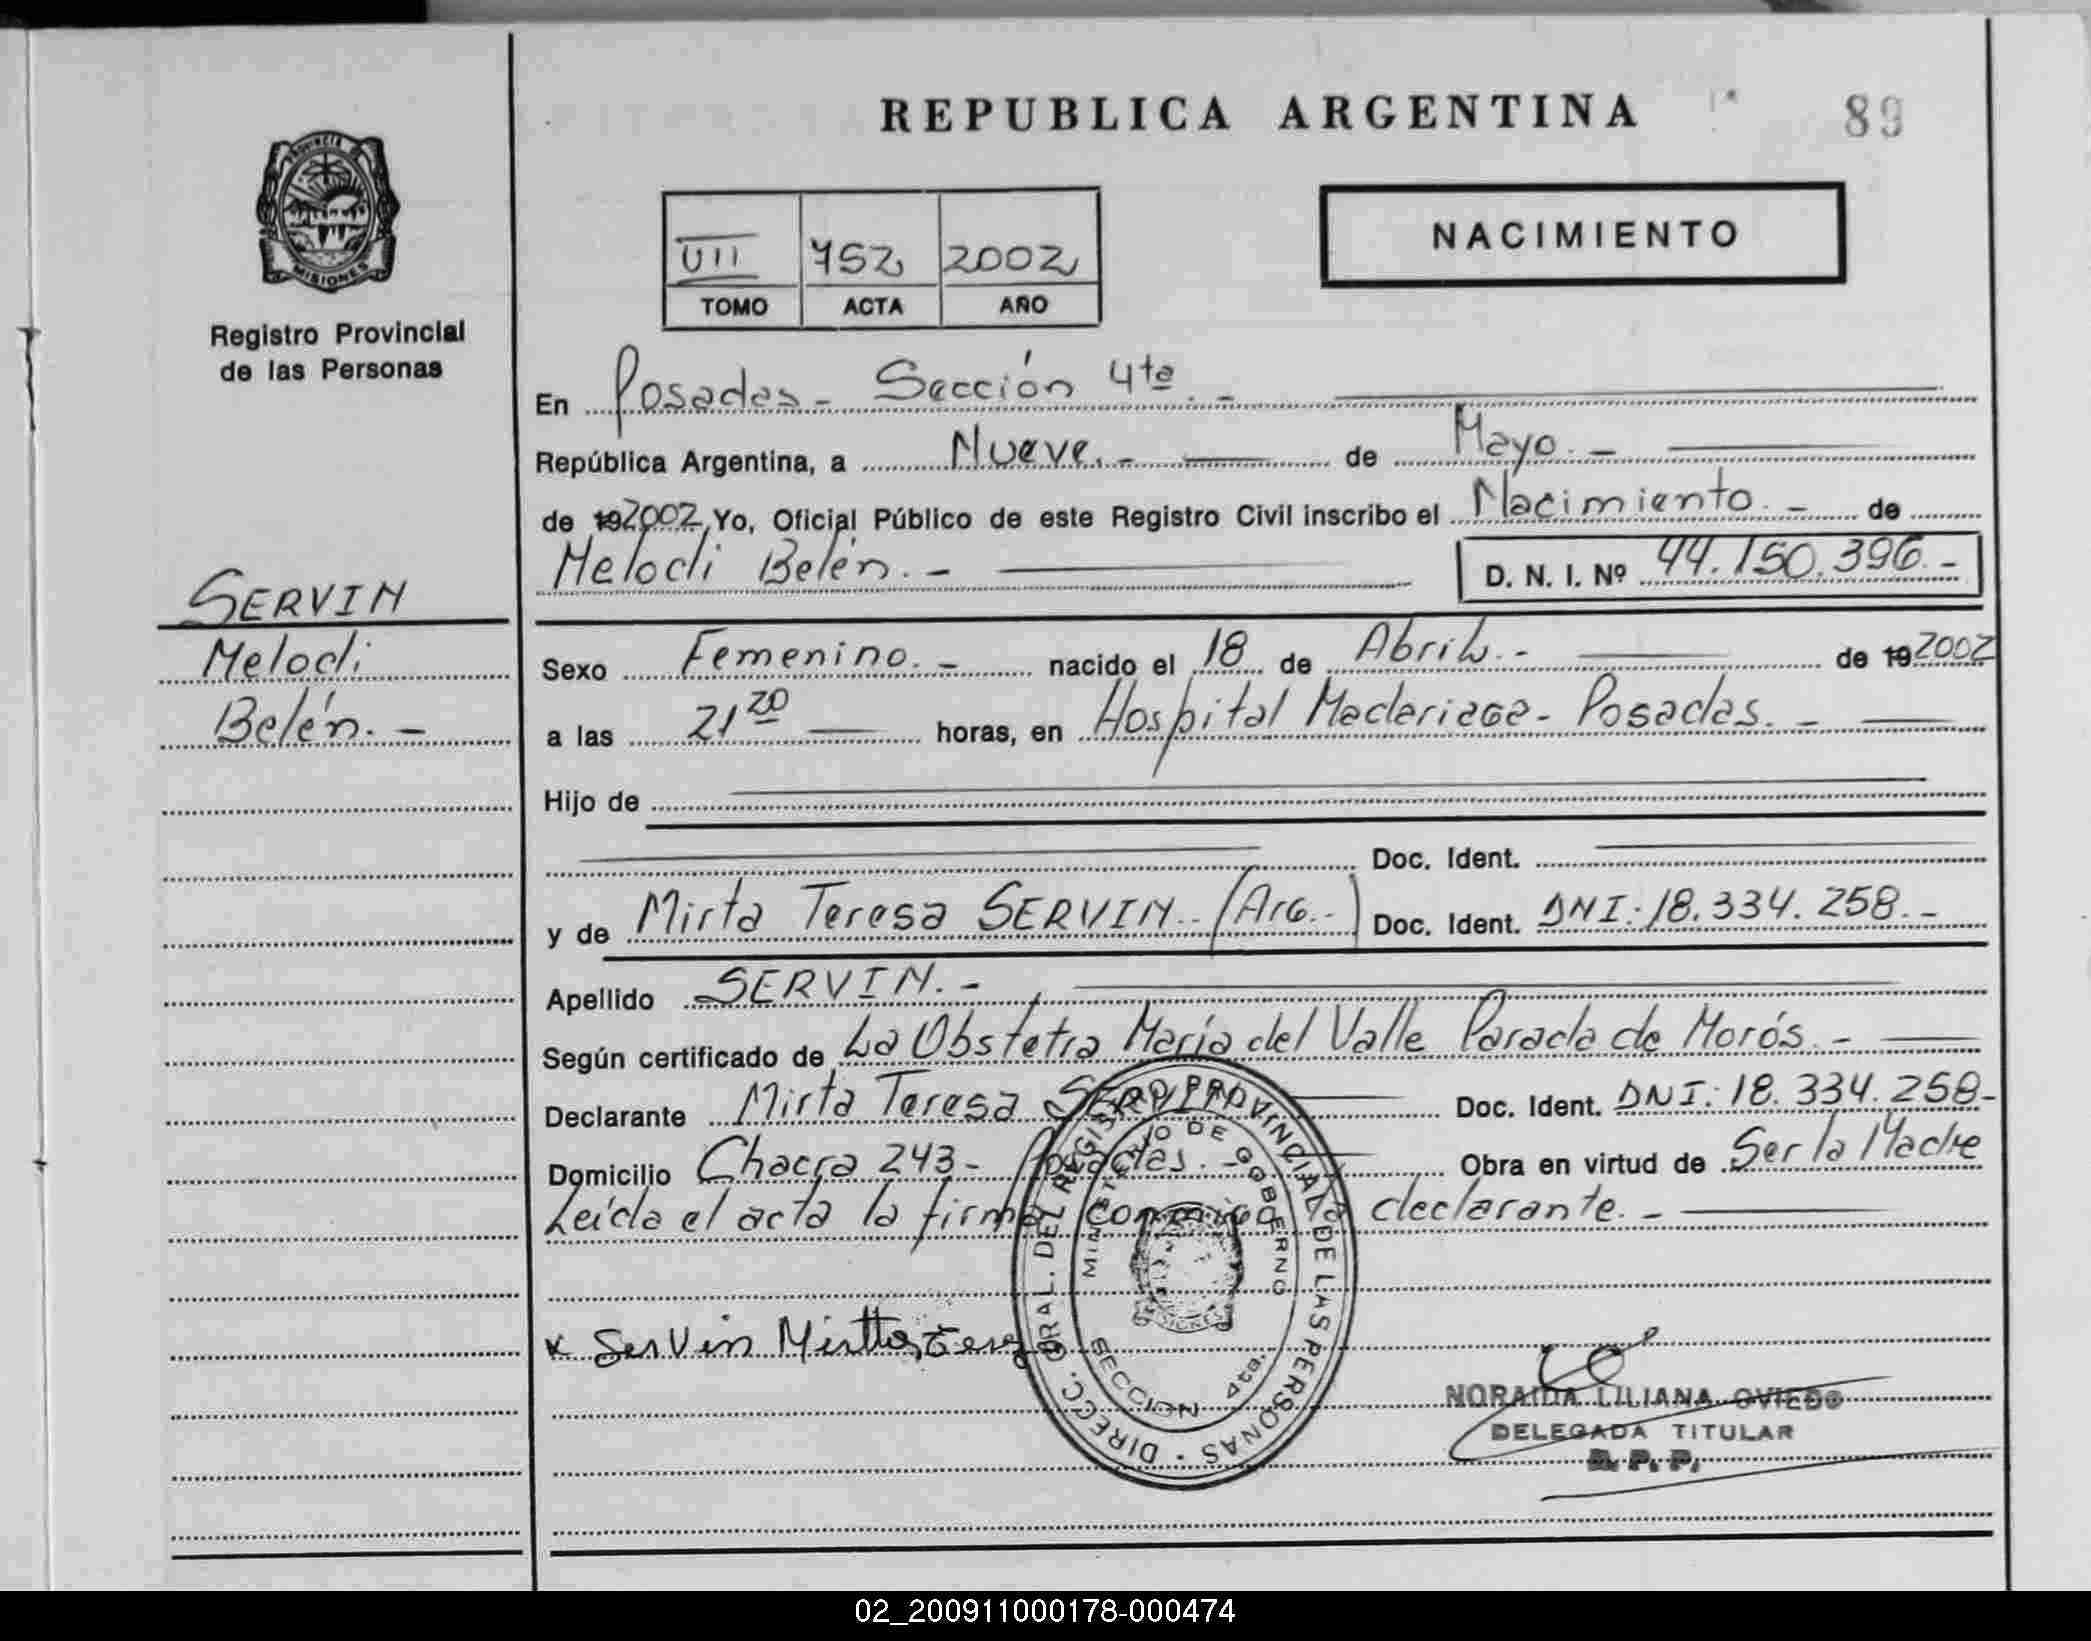 REPUBLICA ARGENTINA
89
PROVINCIA DE
MISIONES
Registro Provincial
de las Personas
VII 752 2002
TOMO ACTA AÑO
NACIMIENTO
En Posadas - Sección 4ta. -
República Argentina, a Nueve. - de Mayo. -
de 192002, Yo, Oficial Público de este Registro Civil inscribo el Nacimiento. - de
Melodi Belén. - D. N. I. Nº 44.150.396. -
SERVIN
Melodi
Belén. -
Sexo Femenino. - nacido el 18 de Abril. - de 192002
a las 21 20 horas, en Hospital Madariaga - Posadas. -
Hijo de
Doc. Ident.
y de Mirta Teresa SERVIN. (Arg.) Doc. Ident. DNI: 18.334.258. -
Apellido SERVIN. -
Según certificado de La Obstetra María del Valle Parada de Morós. -
Declarante Mirta Teresa SERVIN Doc. Ident. DNI: 18.334.258-
Domicilio Chacra 243 - Posadas. - Obra en virtud de Ser la Madre
Leída el acta la firma conmigo la declarante. -
x Servin Mirtta
DIRECC. GRAL. DEL REGISTRO PROVINCIAL DE LAS PERSONAS
MINISTERIO DE GOBIERNO
MISIONES
SECCION 4ta.
NORAIDA LILIANA OVIEDO
DELEGADA TITULAR
R. P. P.
02_200911000178-000474